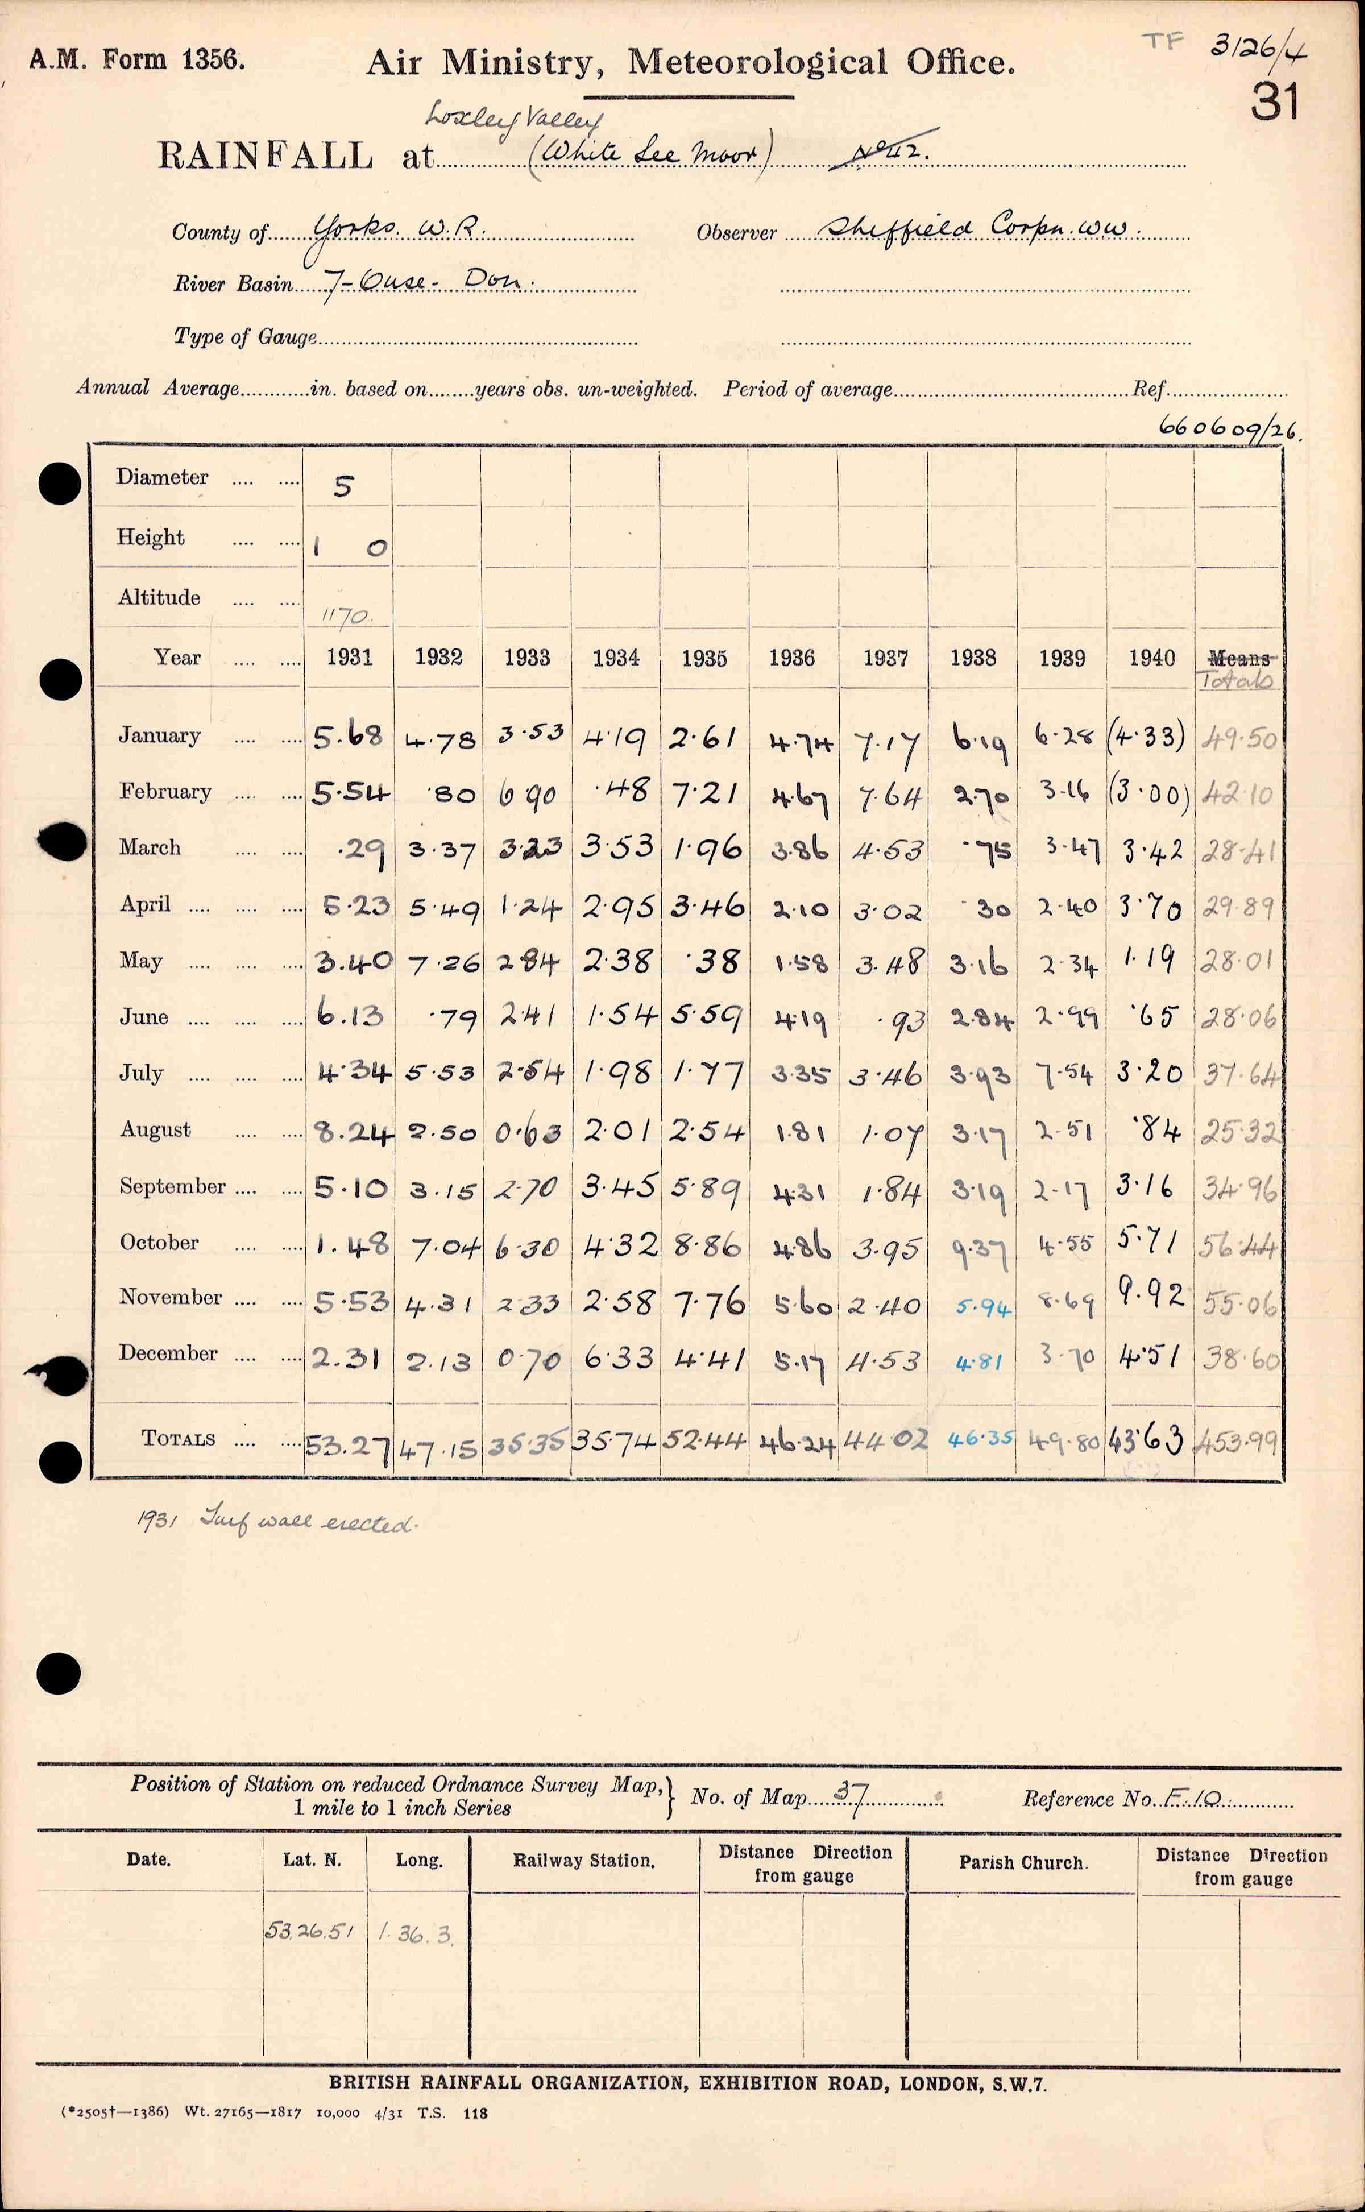 TF 3126/4
A.M. Form 1356. Air Ministry, Meteorological Office. 31
Loxley Valley
RAINFALL at (White Lee Moor) No 42.
County of Yorks. W.R. Observer Sheffield Corpn. WW.
River Basin 7-Ouse-Don.
Type of Gauge
Annual Average in. based on years obs. un-weighted. Period of average Ref.
660609/26.
Diameter 5
Height 1 0
Altitude 1170.
Year 1931 1932 1933 1934 1935 1936 1937 1938 1939 1940 Means
Totals
January 5.68 4.78 3.53 4.19 2.61 4.74 7.17 6.19 6.28 (4.33) 49.50
February 5.54 .80 6.90 .48 7.21 4.67 7.64 2.70 3.16 (3.00) 42.10
March .29 3.37 3.23 3.53 1.96 3.86 4.53 .75 3.47 3.42 28.41
April 5.23 5.49 1.24 2.95 3.46 2.10 3.02 .30 2.40 3.70 29.89
May 3.40 7.26 2.84 2.38 .38 1.58 3.48 3.16 2.34 1.19 28.01
June 6.13 .79 2.41 1.54 5.59 4.19 .93 2.84 2.99 .65 28.06
July 4.34 5.53 2.54 1.98 1.77 3.35 3.46 3.93 7.54 3.20 37.64
August 8.24 2.50 0.63 2.01 2.54 1.81 1.07 3.17 2.51 .84 25.32
September 5.10 3.15 2.70 3.45 5.89 4.31 1.84 3.19 2.17 3.16 34.96
October 1.48 7.04 6.30 4.32 8.86 4.86 3.95 9.37 4.55 5.71 56.44
November 5.53 4.31 2.33 2.58 7.76 5.60 2.40 5.94 8.69 9.92 55.06
December 2.31 2.13 0.70 6.33 4.41 5.17 4.53 4.81 3.70 4.51 38.60
TOTALS 53.27 47.15 35.35 35.74 52.44 46.24 44.02 46.35 49.80 43.63 453.99
1931 Turf wall erected.
Position of Station on reduced Ordnance Survey Map, } No. of Map 37 Reference No. F.10.
1 mile to 1 inch Series
Date. Lat. N. Long. Railway Station. Distance Direction from gauge Parish Church. Distance Direction from gauge
53.26.51 1.36.3.
BRITISH RAINFALL ORGANIZATION, EXHIBITION ROAD, LONDON, S.W.7.
(*2505†—1386) Wt. 27165—1817 10,000 4/31 T.S. 118